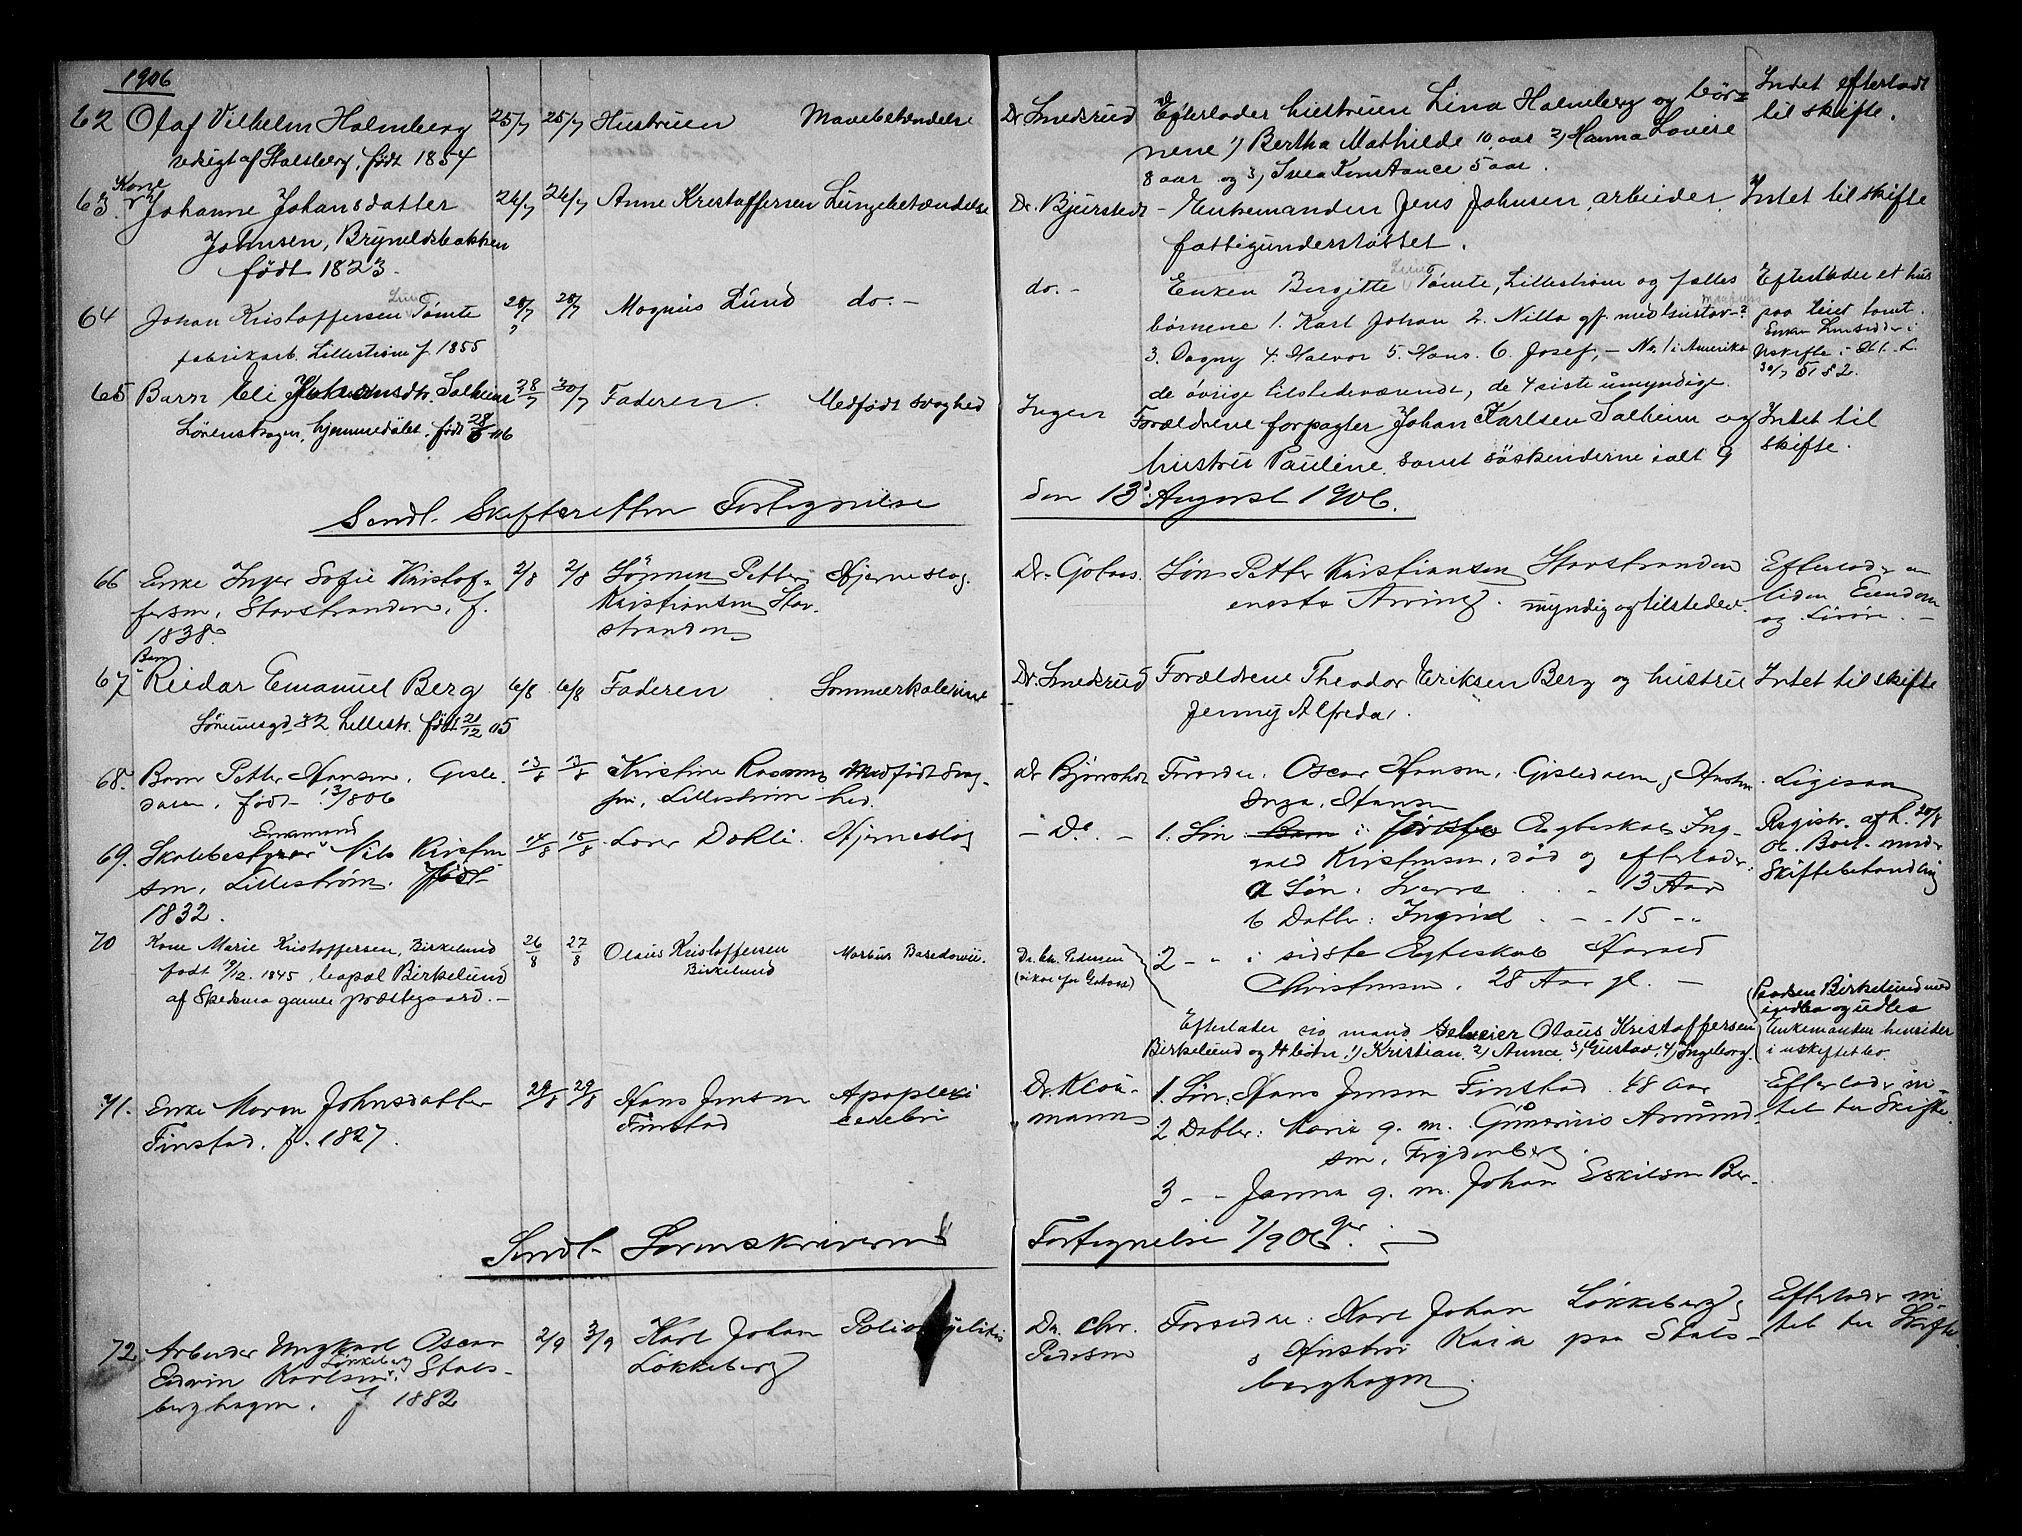 1906
62 Olaf Vilhelm Holmberg 25/7 25/7 Hustruen Mavebetændelse Dr Smedsrud Efterlader hustruen Lina Holmberg og bør= Intet efterladt
Stalsberg, født 1854 nene 1) Bertha Mathilde 10 aar 2) Hanna Lovise til skifte.
8 aar og 3) Svea Konstance 5 aar.
Kone
63. Johanne Johansdatter 26/7 26/7 Anne Kristoffersen Lungebetændelse Dr. Bjurstedt - Enkemanden Jens Johnsen, arbeider, Intet til skifte
Johnsen, Bryneldsbakken fattigunderstøttet.
født 1823.
64 Johan Kristoffersen Lund Tømte 28/7 28/7 Magnus Lund do. - do. - Enken Bergitte Lund Tømte, Lillestrøm og fælles Efterlader et hus
fabrikarb. Lillestrøm f. 1855 børnene 1. Karl Johan 2. Nilla gf. med Gustav - ? Magnus paa leiet tomt.
3. Dagny 4. Halvor 5. Hans. 6. Josef, - No. 1 i Amerika Enken
de øvrige tilstedeværende, de 4 siste umyndige. uskifte
65 Barn Eli Johansdtr. Solheim 28/7 30/7 Faderen. Medfødt svaghed Ingen Forældrene forpagter Johan Karlsen Solheim og Intet til
Lørenskogen, hjemmedøbt. født 28/6 06 hustru Pauline, samt søskenderne ialt 9 skifte.
Sendt Skifteretten Fortegnelse den 13d August 1906.
66 Enke Inger Sofie Kristof= 2/8 2/8 Sønnen Petter Hjerneslag. Dr. Gotaas. Søn Petter Kristiansen Storstranden Efterlader en
fersen, Storstranden, f. Kristiansen Stor- eneste Arving. myndig og tilstedev. liden Eiendom
1838. stranden og Løsøre. -
Barn
67 Reidar Emanuel Berg 6/8 6/8 Faderen Sommerkolerine Dr. Smedsrud Forældrene Theodor Eriksen Berg og hustru Intet til skifte
Sørumsgd 32 Lillestr. født 21/12 05 Jenny Alfreda.
68. Barn Petter Hansen, Gisle- 13/8 13/8 Kristine Rasmus- Medfødt Svag- Dr Bjørstedt Forældre: Oscar Hansen, Gisledalen, Hustru Ligesaa
dalen, født 13/8 06 sen, Lillestrøm hed. Inga Hansen
69. Skolebestyrer Enkemand Nils Kristen- 14/8 15/8 Lærer Dahli. Hjerneslag - Do. - 1. Søn i første Ægteskab Ing- Registr. afh. 20/8
sen, Lillestrøm. Født vald Kristensen, død og efterlader: og Boet under
1832. a Søn: Sverre . . - 13 Aar Skiftebehandling
b Datter: Ingrid . - - 15 - "
2 - " i sidste Ægteskab Harald
Christensen, 28 Aar gl. -
70 Kone Marie Kristoffersen, Birkelund 26/8 27/8 Olaus Kristoffersen Morbus Basedowii. Dr. Chr. Pedersen
født 19/12 1845, bopæl Birkelund Birkelund (vikar for Gotaas)
af Skedsmo gamle præstegaard. -
Efterlader sig mand Selveier Olaus Kristoffersen
Birkelund og 4 børn: 1) Kristian, 2) Anna, 3) Gustav, 4) Ingeborg.
Parten Birkelund med
indbo og udbo
Enkemanden hensidder
i uskiftet bo.
71. Enke Maren Johnsdatter 29/8 29/8 Hans Jensen Apoplexi Dr. Klou- 1. Søn. Hans Jensen Finstad. 48 Aar Efterlader in-
Finstad. f. 1827. Finstad cerebri mann 2. Datter: Maria g. m. Gunerius Amund- tet til Skifte.
sen, Frydenberg.
3 - - Janna g. m. Johan Eskilsen Ber-
ger.
Sendt Sorenskriveren Fortegnelse 7/9 06
72 Arbeider Ungkarl Oscar 2/9 3/9 Karl Johan Poliomyelitis Dr. Chr. Forældre: Karl Johan Løkkeberg Efterlader in-
Edvin Karlsen Løkkeberg, Stals- Løkkeberg Pedersen og Hustru Kaia paa Stals- tet til Skifte
berghagen. f. 1882 berghagen.